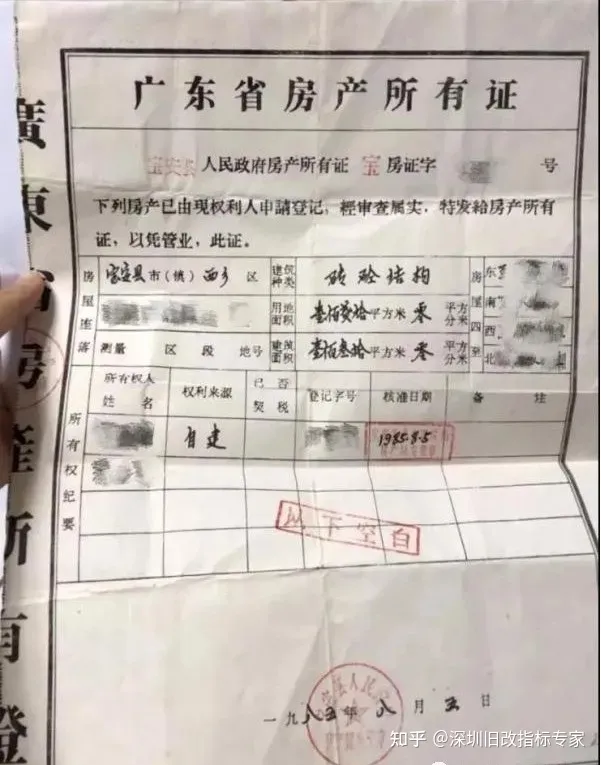 广东省房产所有证
宝安县人民政府房产所有证 宝 房证字 号
下列房产已由现权利人申請登记，經审查属实，特发給房产所有
证，以凭管业，此证。
房屋座落 宝安县市（镇）西乡 区 建筑种类 砖砼结构 房屋四至 东
用地面积 壹佰 平方米 零 平方分米 南
西
测量 区 段 地号 建筑面积 壹佰叁拾平方米 零 平方分米 北
所有权纪要
所有权人姓名 权利来源 已否契税 登记字号 核准日期 备 注
自建 1985.8.5
以下空白
一九八五年八月五日
廣東省房產所有證
知乎 @深圳旧改指标专家